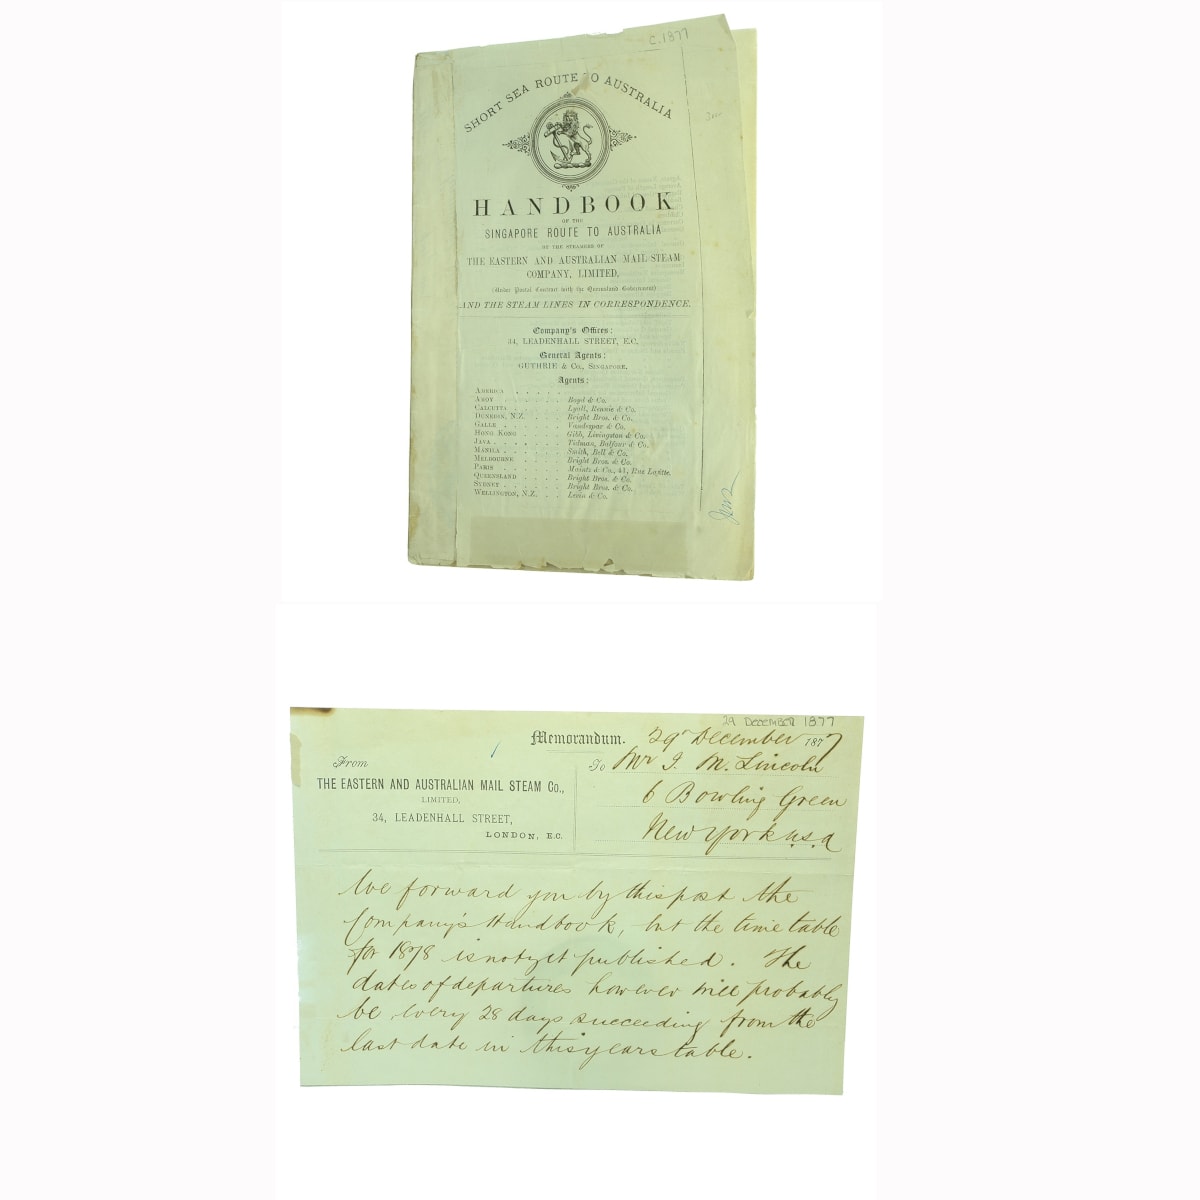 C.1877
SHORT SEA ROUTE TO AUSTRALIA
HANDBOOK
OF THE
SINGAPORE ROUTE TO AUSTRALIA
BY THE STEAMERS OF
THE EASTERN AND AUSTRALIAN MAIL STEAM
COMPANY, LIMITED,
(Under Postal Contract with the Queensland Government)
AND THE STEAM LINES IN CORRESPONDENCE.
Company's Offices:
34, LEADENHALL STREET, E.C.
General Agents:
GUTHRIE & Co., SINGAPORE.
Agents:
AMERICA . . . . .
AMOY . . . . . . Boyd & Co.
CALCUTTA . . . . . Lyall, Rennie & Co.
DUNEDIN, N.Z. . . . Bright Bros. & Co.
GALLE . . . . . . Vanderspar & Co.
HONG KONG . . . . Gibb, Livingston & Co.
JAVA . . . . . . Tidman, Balfour & Co.
MANILA . . . . . Smith, Bell & Co.
MELBOURNE . . . . Bright Bros. & Co.
PARIS . . . . . . , 41, Rue Lafitte.
QUEENSLAND . . . . Bright Bros. & Co.
SYDNEY . . . . . . Bright Bros. & Co.
WELLINGTON, N.Z. . . Levin & Co.
29 DECEMBER 1877
Memorandum. 29 December 1877
From
THE EASTERN AND AUSTRALIAN MAIL STEAM Co.,
LIMITED,
34, LEADENHALL STREET,
LONDON, E.C.
To Mr J. M. Lincoln
6 Bowling Green
New York U.S.A
We forward you by this post the
Company's Handbook, but the time table
for 1878 is not yet published. The
dates of departures however will probably
be every 28 days succeeding from the
last date in this years table.